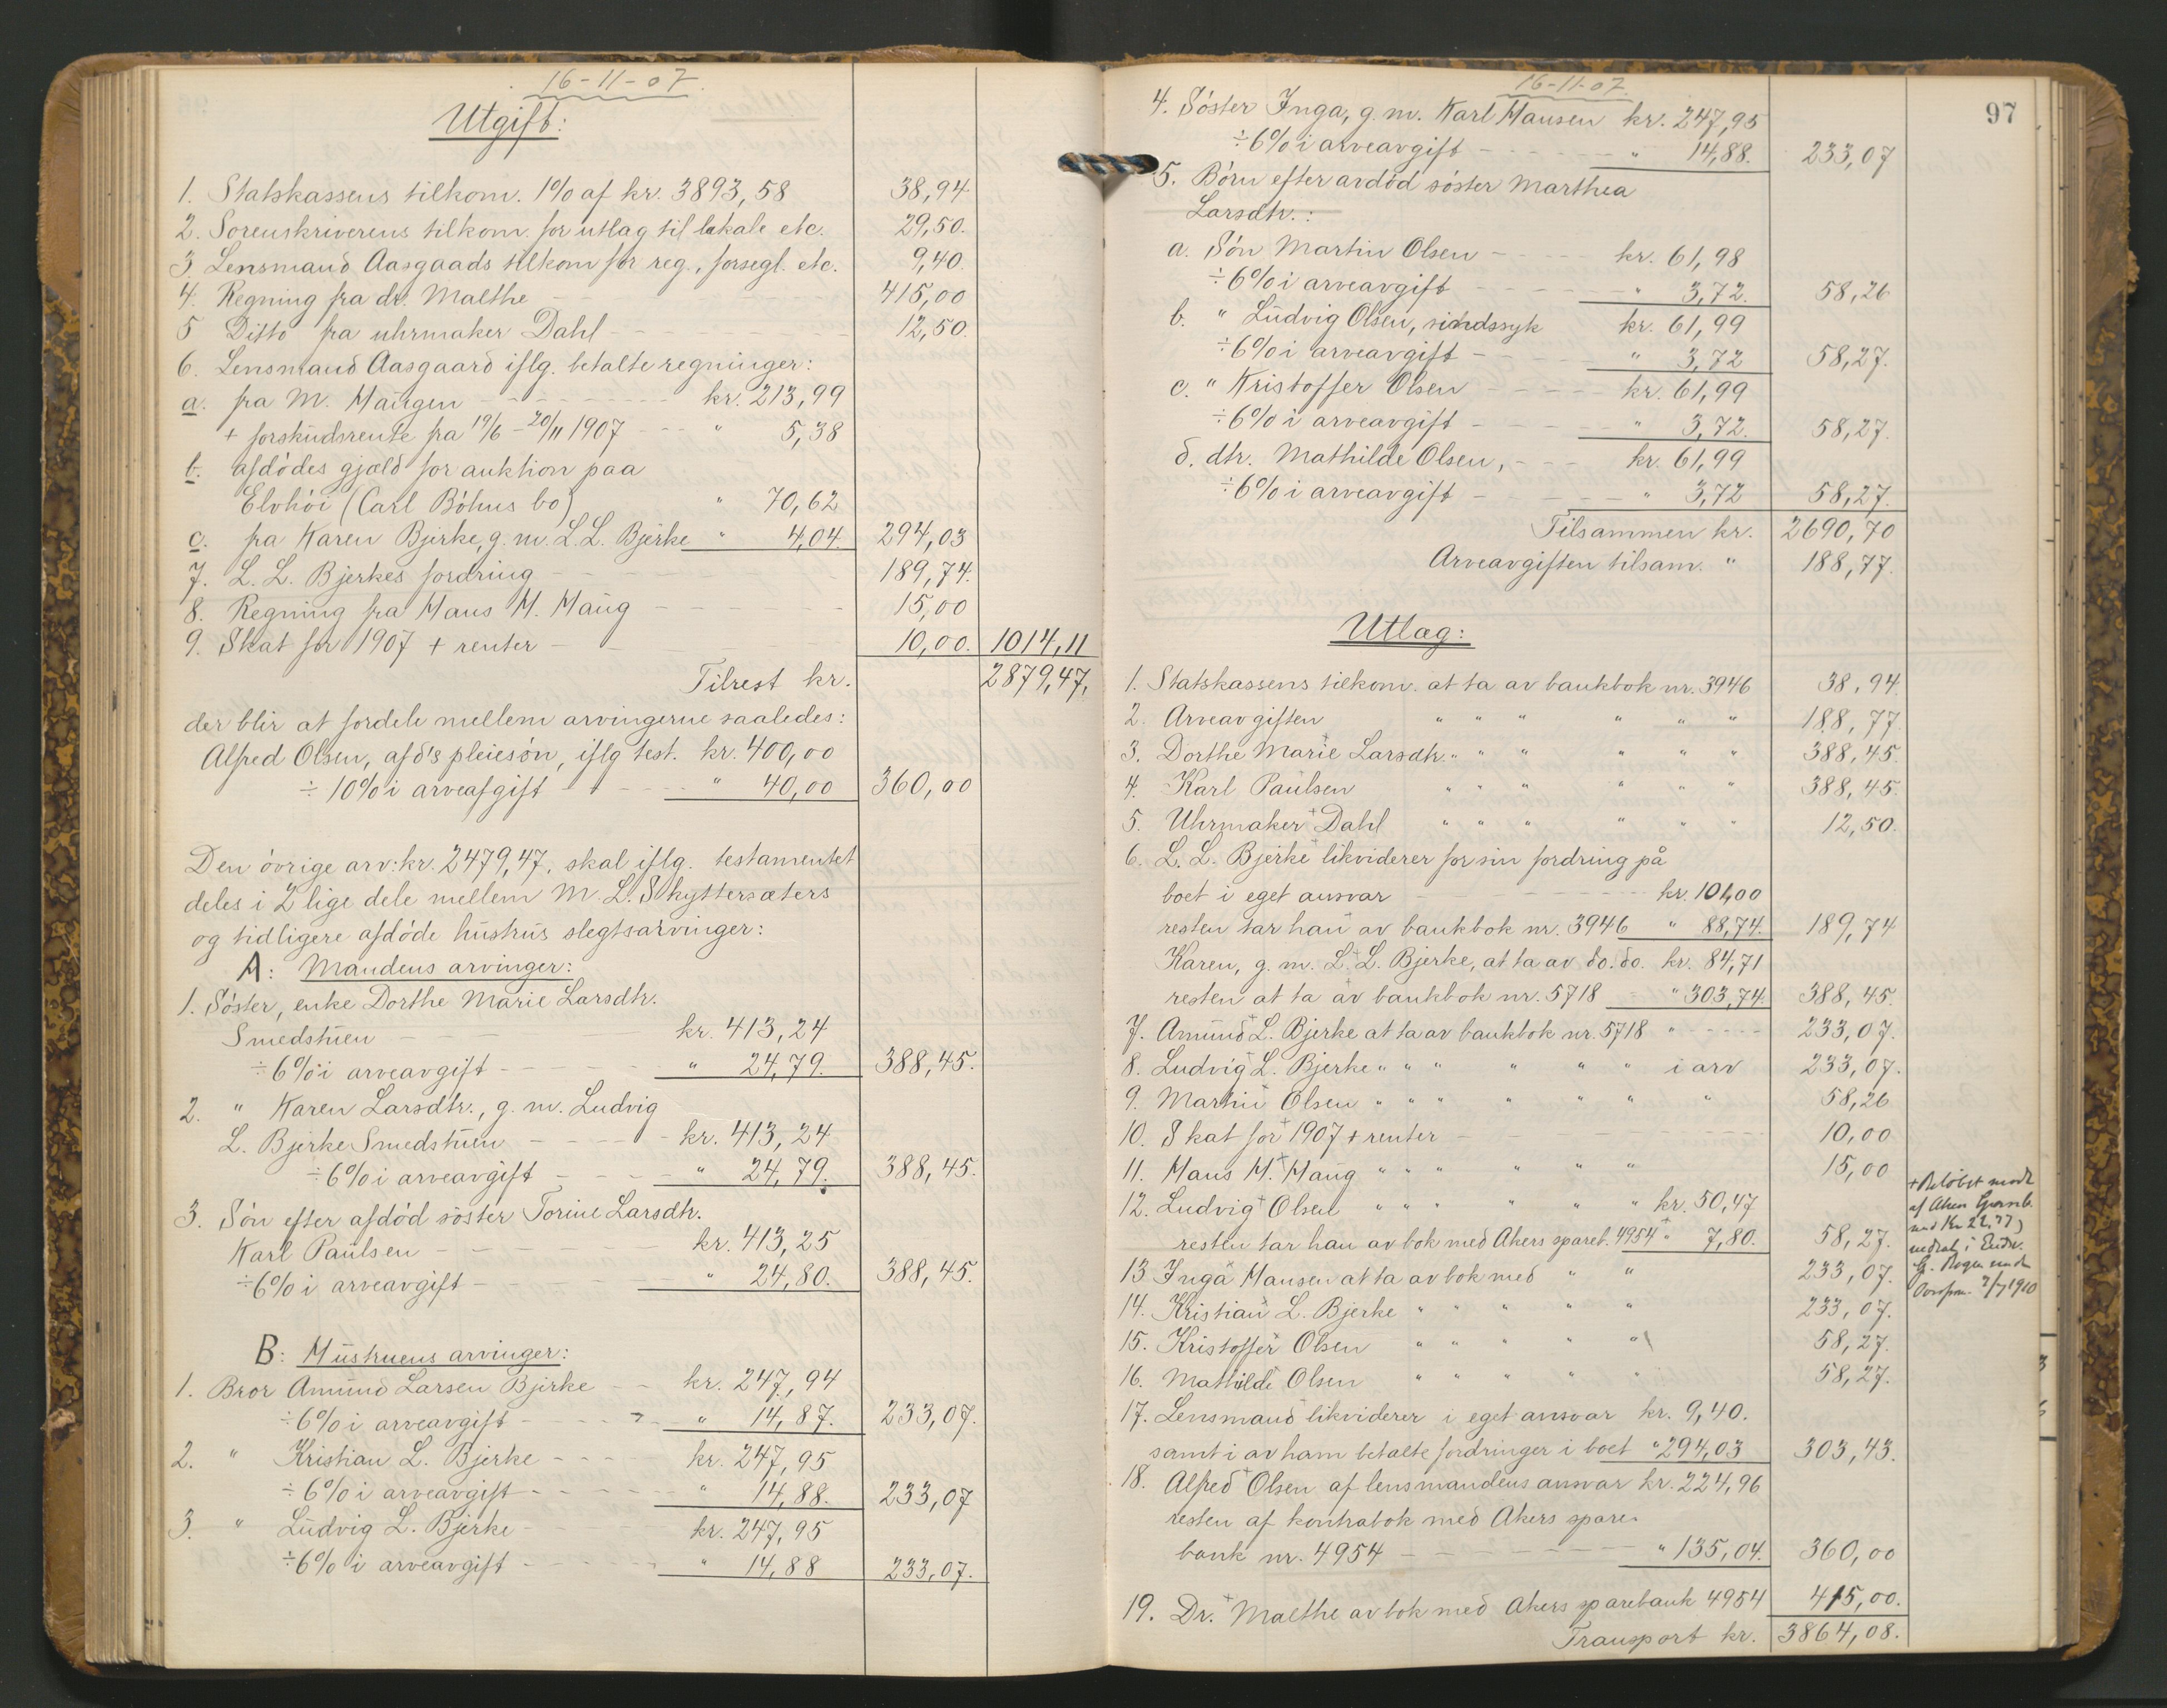 16-11-07.
Utgift:
1. Statskassens tilkom. 1% af kr. 3893,58 38,94
2. Sorenskriverens tilkom. for utlag til lokale etc. 29,50.
3. Lensmand Aasgaards tilkom for reg., forsegl. etc. 9,40.
4. Regning fra dr. Malthe - - 415,00
5 Ditto fra uhrmaker Dahl - - 12,50.
6. Lensmand Aasgaard iflg. betalte regninger:
a. fra M. Haugen - - - kr. 213,99
+ forskudsrente fra 19/6 - 20/11 1907 - - " 5,38
b. afdødes gjæld for auktion paa
Elvhöi (Carl Böhns bo) " 70,62
c. fra Karen Bjerke, g. m. L. L. Bjerke " 4,04. 294,03
7. L. L. Bjerkes fordring - - 189,74.
8. Regning fra Hans H. Haug - - - 15,00
9. Skat for 1907 + renter - - 10,00. 1014,11
Tilrest kr. 2879,47.
der blir at fordele mellem arvingerne saaledes:
Alfred Olsen, afd's pleiesön, iflg test. kr. 400,00
÷ 10% i arveafgift - - - " 40,00 360,00
Den övrige arv: kr. 2479,47. skal iflg. testamentet
deles i 2 lige dele mellem M. L. Skyttersæters
og tidligere afdöde hustrus slegtsarvinger:
A: Mandens arvinger:
1. Söster, enke Dorthe Marie Larsdtr.
Smedstuen - - kr. 413,24
÷ 6% i arveavgift - - - " 24,79. 388,45.
2. " Karen Larsdtr., g. m. Ludvig
L. Bjerke Smedstuen - - - kr. 413,24
÷ 6% i arveavgift - - - " 24,79. 388,45.
3. Sön efter afdöd söster Torine Larsdtr.
Karl Paulsen - - - kr. 413,25
÷ 6% i arveavgift - - - " 24,80. 388,45.
B: Hustruens arvinger:
1. Bror Amund Larsen Bjerke - - kr. 247,94
÷ 6% i arveavgift - - - " 14,87. 233,07.
2. " Kristian L. Bjerke - - - kr. 247,95
÷ 6% i arveavgift - - - " 14,88. 233,07
3. " Ludvig L. Bjerke - kr. 247,95
÷ 6% i arveavgift - - - " 14,88 233,07.
16-11-07.
97
4. Söster Inga, g. m. Karl Hansen kr. 247,95
÷ 6% i arveavgift - - - " 14,88. 233,07
5. Börn efter avdöd söster Marthea
Larsdtr.:
a. Sön Martin Olsen - - - kr. 61,98
÷ 6% i arveavgift - - - " 3,72. 58,26
b. " Ludvig Olsen, sindssyk kr. 61,99
÷ 6% i arveavgift - - - " 3,72 58,27.
c. " Kristoffer Olsen - - - kr. 61,99
÷ 6% i arveavgift - - - " 3,72. 58,27.
d. dtr. Mathilde Olsen, - - - kr. 61,99
÷ 6% i arveavgift - - - " 3,72 58,27.
Tilsammen kr. 2690,70
Arveavgiften tilsam. " 188,77.
Utlæg:
1. Statskassens tilkom. at ta av bankbok nr. 3946 38,94.
2. Arveavgiften " " " " " " 188,77
3. Dorthe Marie Larsdtr. " " " " " " 388,45.
4. Karl Paulsen " " " " " " 388,45.
5. Uhrmaker Dahl " " " " " " 12,50.
6. L. L. Bjerke likviderer for sin fordring på
boet i eget ansvar - - - kr. 101,00
resten tar han av bankbok nr. 3946 " 88,74. 189,74
Karen, g. m. L. L. Bjerke, at ta av do. do. kr. 84,71
resten at ta av bankbok nr. 5718 - " 303,74. 388,45.
7. Amund L. Bjerke at ta av bankbok nr. 5718 " - - - 233,07.
8. Ludvig L. Bjerke " " " " " " i arv 233,07.
9. Martin Olsen " " " " " " " 58,26
10. Skat for 1907 + renter - - - 10,00
11. Hans H. Haug " " " " " " 15,00
12. Ludvig Olsen " " " " " " kr. 50,47
resten tar han av bok med Akers spareb. 4954 " 7,80. 58,27.
13 Inga Hansen at ta av bok med " " 233,07.
14. Kristian L. Bjerke " " " " " 233,07.
15. Kristoffer Olsen " " " " " 58,27.
16. Mathilde Olsen " " " " " 58,27.
17. Lensmand likviderer i eget ansvar kr. 9,40.
samt i av ham betalte fordringer i boet " 294,03 303,43.
18. Alfred Olsen af lensmandens ansvar kr. 224,96
resten af kontrabok med Akers spare-
bank nr. 4954 - - - " 135,04. 360,00
19. Dr. Malthe av bok med Akers sparebank 4954 415,00.
Transport kr. 3864,08.
+ Beløbet
af Aker
7/7 1910